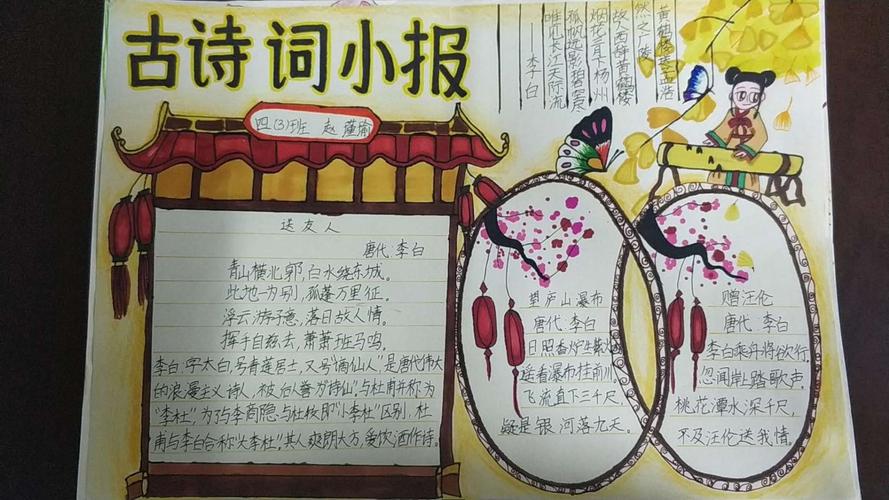 古诗词小报
四(3)班 赵瑾瑜
黄鹤楼送孟浩
然之广陵
故人西辞黄鹤楼
烟花三月下杨州
孤帆远影碧空尽
唯见长江天际流
——李白
送友人
唐代 李白
青山横北郭,白水绕东城。
此地一为别,孤蓬万里征。
浮云游子意,落日故人情。
挥手自兹去,萧萧班马鸣。
李白,字太白,号青莲居士,又号"谪仙人"是唐代伟大
的浪漫主义诗人,被后人誉为"诗仙"。与杜甫并称为
"李杜",为了与李商隐与杜牧即"小李杜"区别,杜
甫与李白合称"大李杜"。其人爽朗大方,爱饮酒作诗。
望庐山瀑布
唐代 李白
日照香炉生紫烟
遥看瀑布挂前川。
飞流直下三千尺
疑是银河落九天。
赠汪伦
唐代 李白
李白乘舟将欲行,
忽闻岸上踏歌声。
桃花潭水深千尺,
不及汪伦送我情。